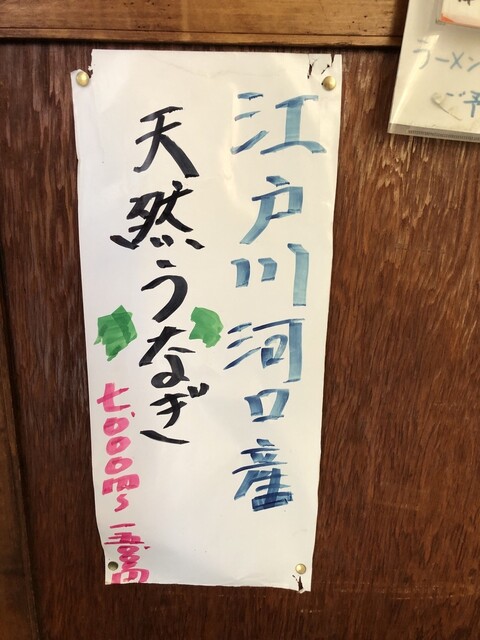 江戸川河口産
天然うなぎ
七、000円〜
ラーメン
ご予